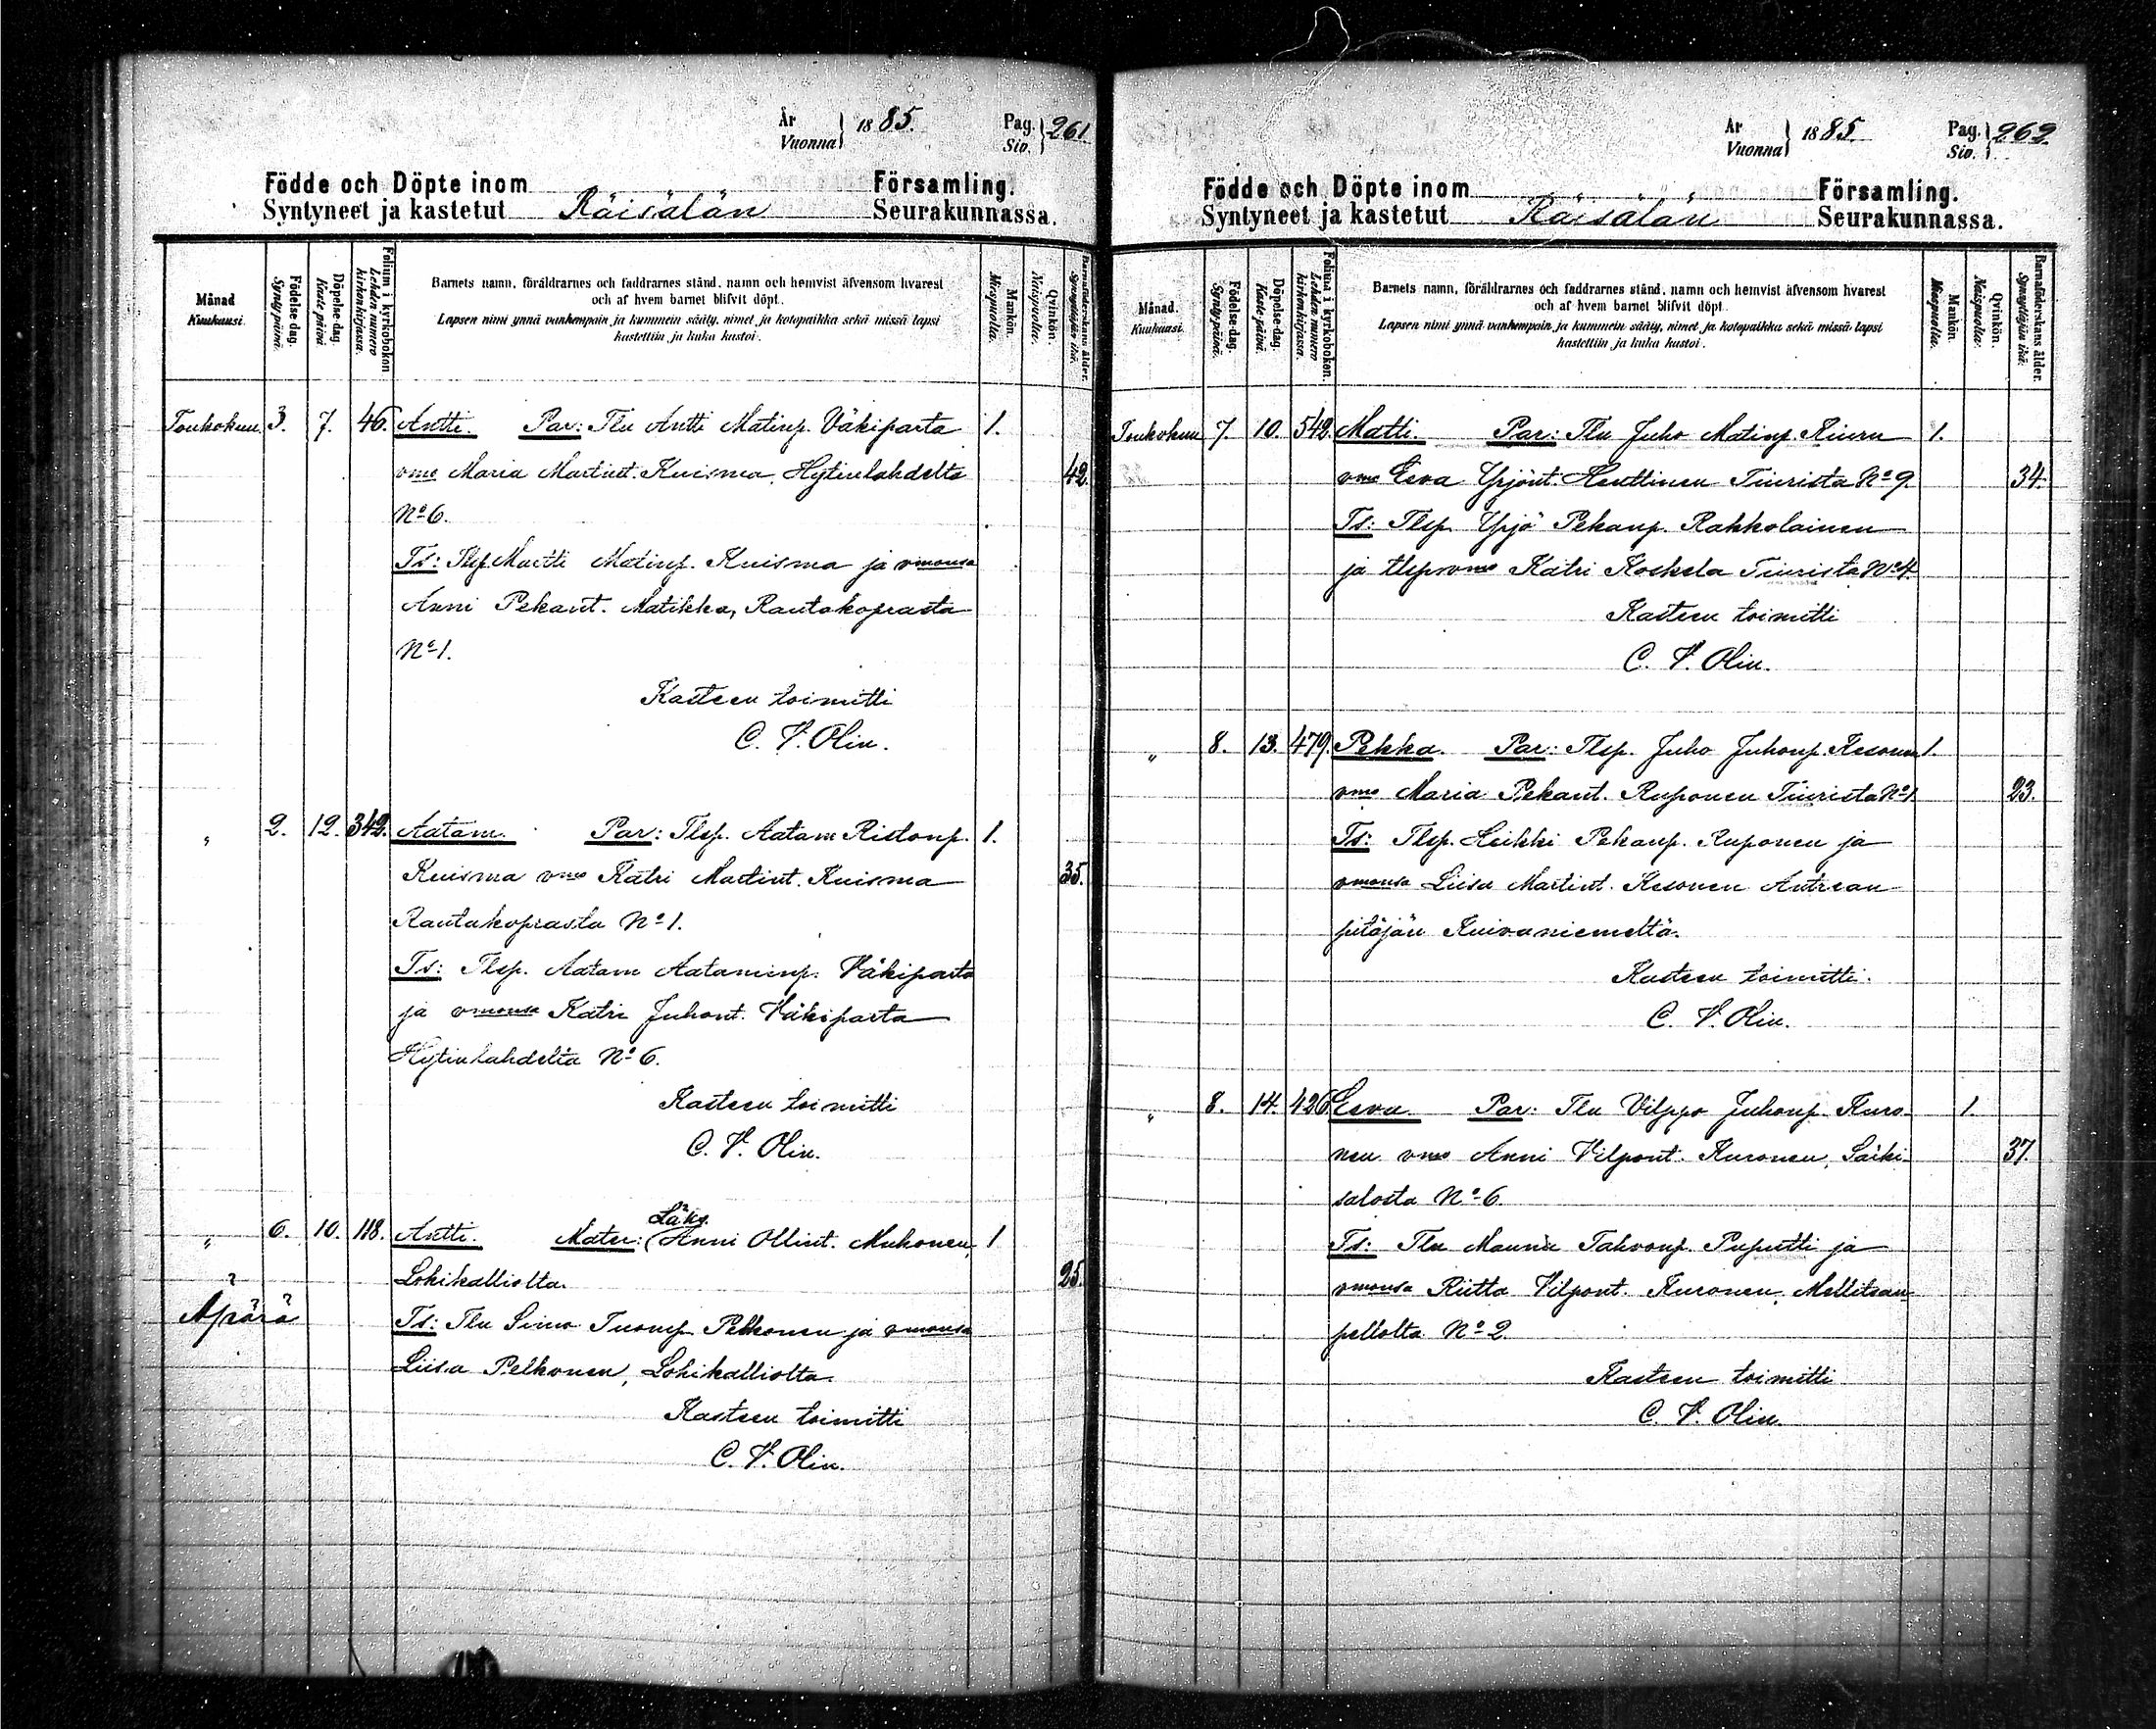 År
Vuonna 1885.
Pag.
Siv. 261
Födde och Döpte inom Församling.
Syntyneet ja kastetut Räisälän Seurakunnassa.
Månad
Kuukausi.
Födelse dag.
Syntypäivä.
Döpelse-dag.
Kaste päivä
Folium i kyrkoboken
Lehden numero
kirkonkirjassa.
Barnets namn, föräldrarnes och faddrarnes stånd, namn och hemvist äfvensom hvarest
och af hvem barnet blifvit döpt.
Lapsen nimi ynnä vanhempain ja kummein sääty, nimet ja kotopaikka sekä missä lapsi
kastettiin ja kuka kastoi.
Mankön.
Miespuolia.
Qvinkön.
Naispuolia.
Barnaföderskans ålder.
Synnyttäjän ikä.
Toukokuu 3. 7. 46. Antti. Par: Tlu Antti Matinp. Väkiparta 1.
vmo Maria Martint. Kuisma, Hytinlahdelta 42.
No 6.
Ts: Tlsp. Martti Matinp. Kuisma ja vmonsa
Anni Pekant. Matikka, Rautakoprasta
No 1.
Kasteen toimitti
C. V. Olin.
" 2. 12. 342. Aatam. Par: Tlsp. Aatam Ristonp. 1.
Kuisma vmo Katri Martint. Kuisma 35.
Rautakoprasta No 1.
Ts: Tlsp. Aatam Aataminp. Väkiparta
ja vmonsa Katri Juhont. Väkiparta
Hytinlahdelta No 6.
Kasteen toimitti
C. V. Olin.
Läks.
" 6. 10. 118. Antti. Mater: (Anni Ollint. Mukonen, 1
Lohikalliolta. 25.
Apärä
Ts: Tlu Simo Tuomp. Pelkonen ja vmonsa
Liisa Pelkonen, Lohikalliolta.
Kasteen toimitti
C. V. Olin.
År
Vuonna 1885.
Pag.
Siv. 262.
Födde och Döpte inom Församling.
Syntyneet ja kastetut Räisälän Seurakunnassa.
Månad.
Kuukausi.
Födelse-dag.
Syntypäivä.
Döpelse-dag.
Kaste-päivä.
Folium i kyrkoboken.
Lehden numero
kirkonkirjassa.
Barnets namn, föräldrarnes och faddrarnes stånd, namn och hemvist äfvensom hvarest
och af hvem barnet blifvit döpt.
Lapsen nimi ynnä vanhempain ja kummein sääty, nimet ja kotopaikka sekä missä lapsi
kastettiin ja kuka kastoi.
Mankön.
Miespuolia.
Qvinkön.
Naispuolia.
Barnaföderskans ålder.
Synnyttäjän ikä.
Toukokuu 7. 10. 542. Matti. Par: Tlu Juho Matinp. Kiuru 1.
vmo Eeva Yrjönt. Henttinen Tiurista No 9. 34.
Ts: Tlsp. Yrjö Pekanp. Rakkolainen
ja tlspvmo Katri Koskela Tiurista No 4.
Kasteen toimitti
C. V. Olin.
" 8. 13. 479. Pekka. Par: Tlsp. Juho Juhonp. Kesonen 1.
vmo Maria Pekant. Ruponen Tiurista No 1 23.
Ts: Tlsp. Heikki Pekanp. Ruponen ja
vmonsa Liisa Martint. Kesonen Antrean
pitäjän Kuivaniemeltä.
Kasteen toimitti.
C. V. Olin.
" 8. 14. 426. Eeva. Par: Tlu Vilppo Juhonp. Kuro- 1.
nen vmo Anni Vilpont. Kuronen, Särki- 37.
salosta No 6.
Ts: Tlu Maunu Tahvonp. Puputti ja
vmonsa Riitta Vilpont. Kuronen, Mellitsan
pellolta No 2.
Kasteen toimitti
C. V. Olin.